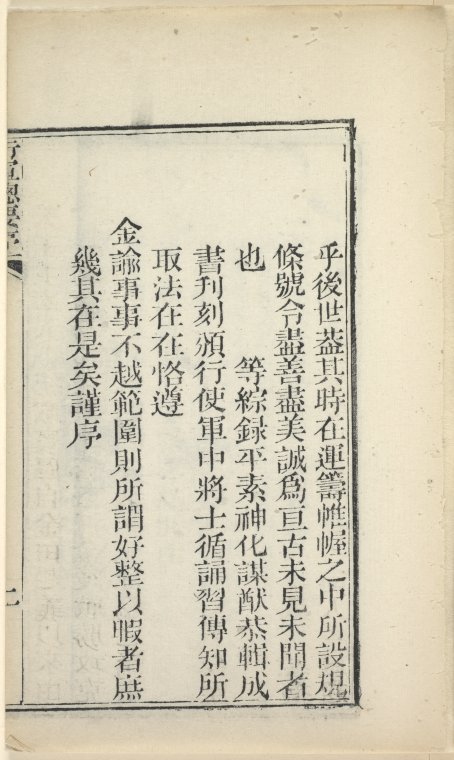 乎後世葢其時在運籌帷幄之中所設規
條號令盡善盡美誠爲亘古未見未聞者
也　　等綜録平素神化謀猷恭輯成
書刋刻頒行使軍中將士循誦習傳知所
取法在在恪遵
金諭事事不越範圍則所謂好整以暇者庶
幾其在是矣謹序
行軍總要序